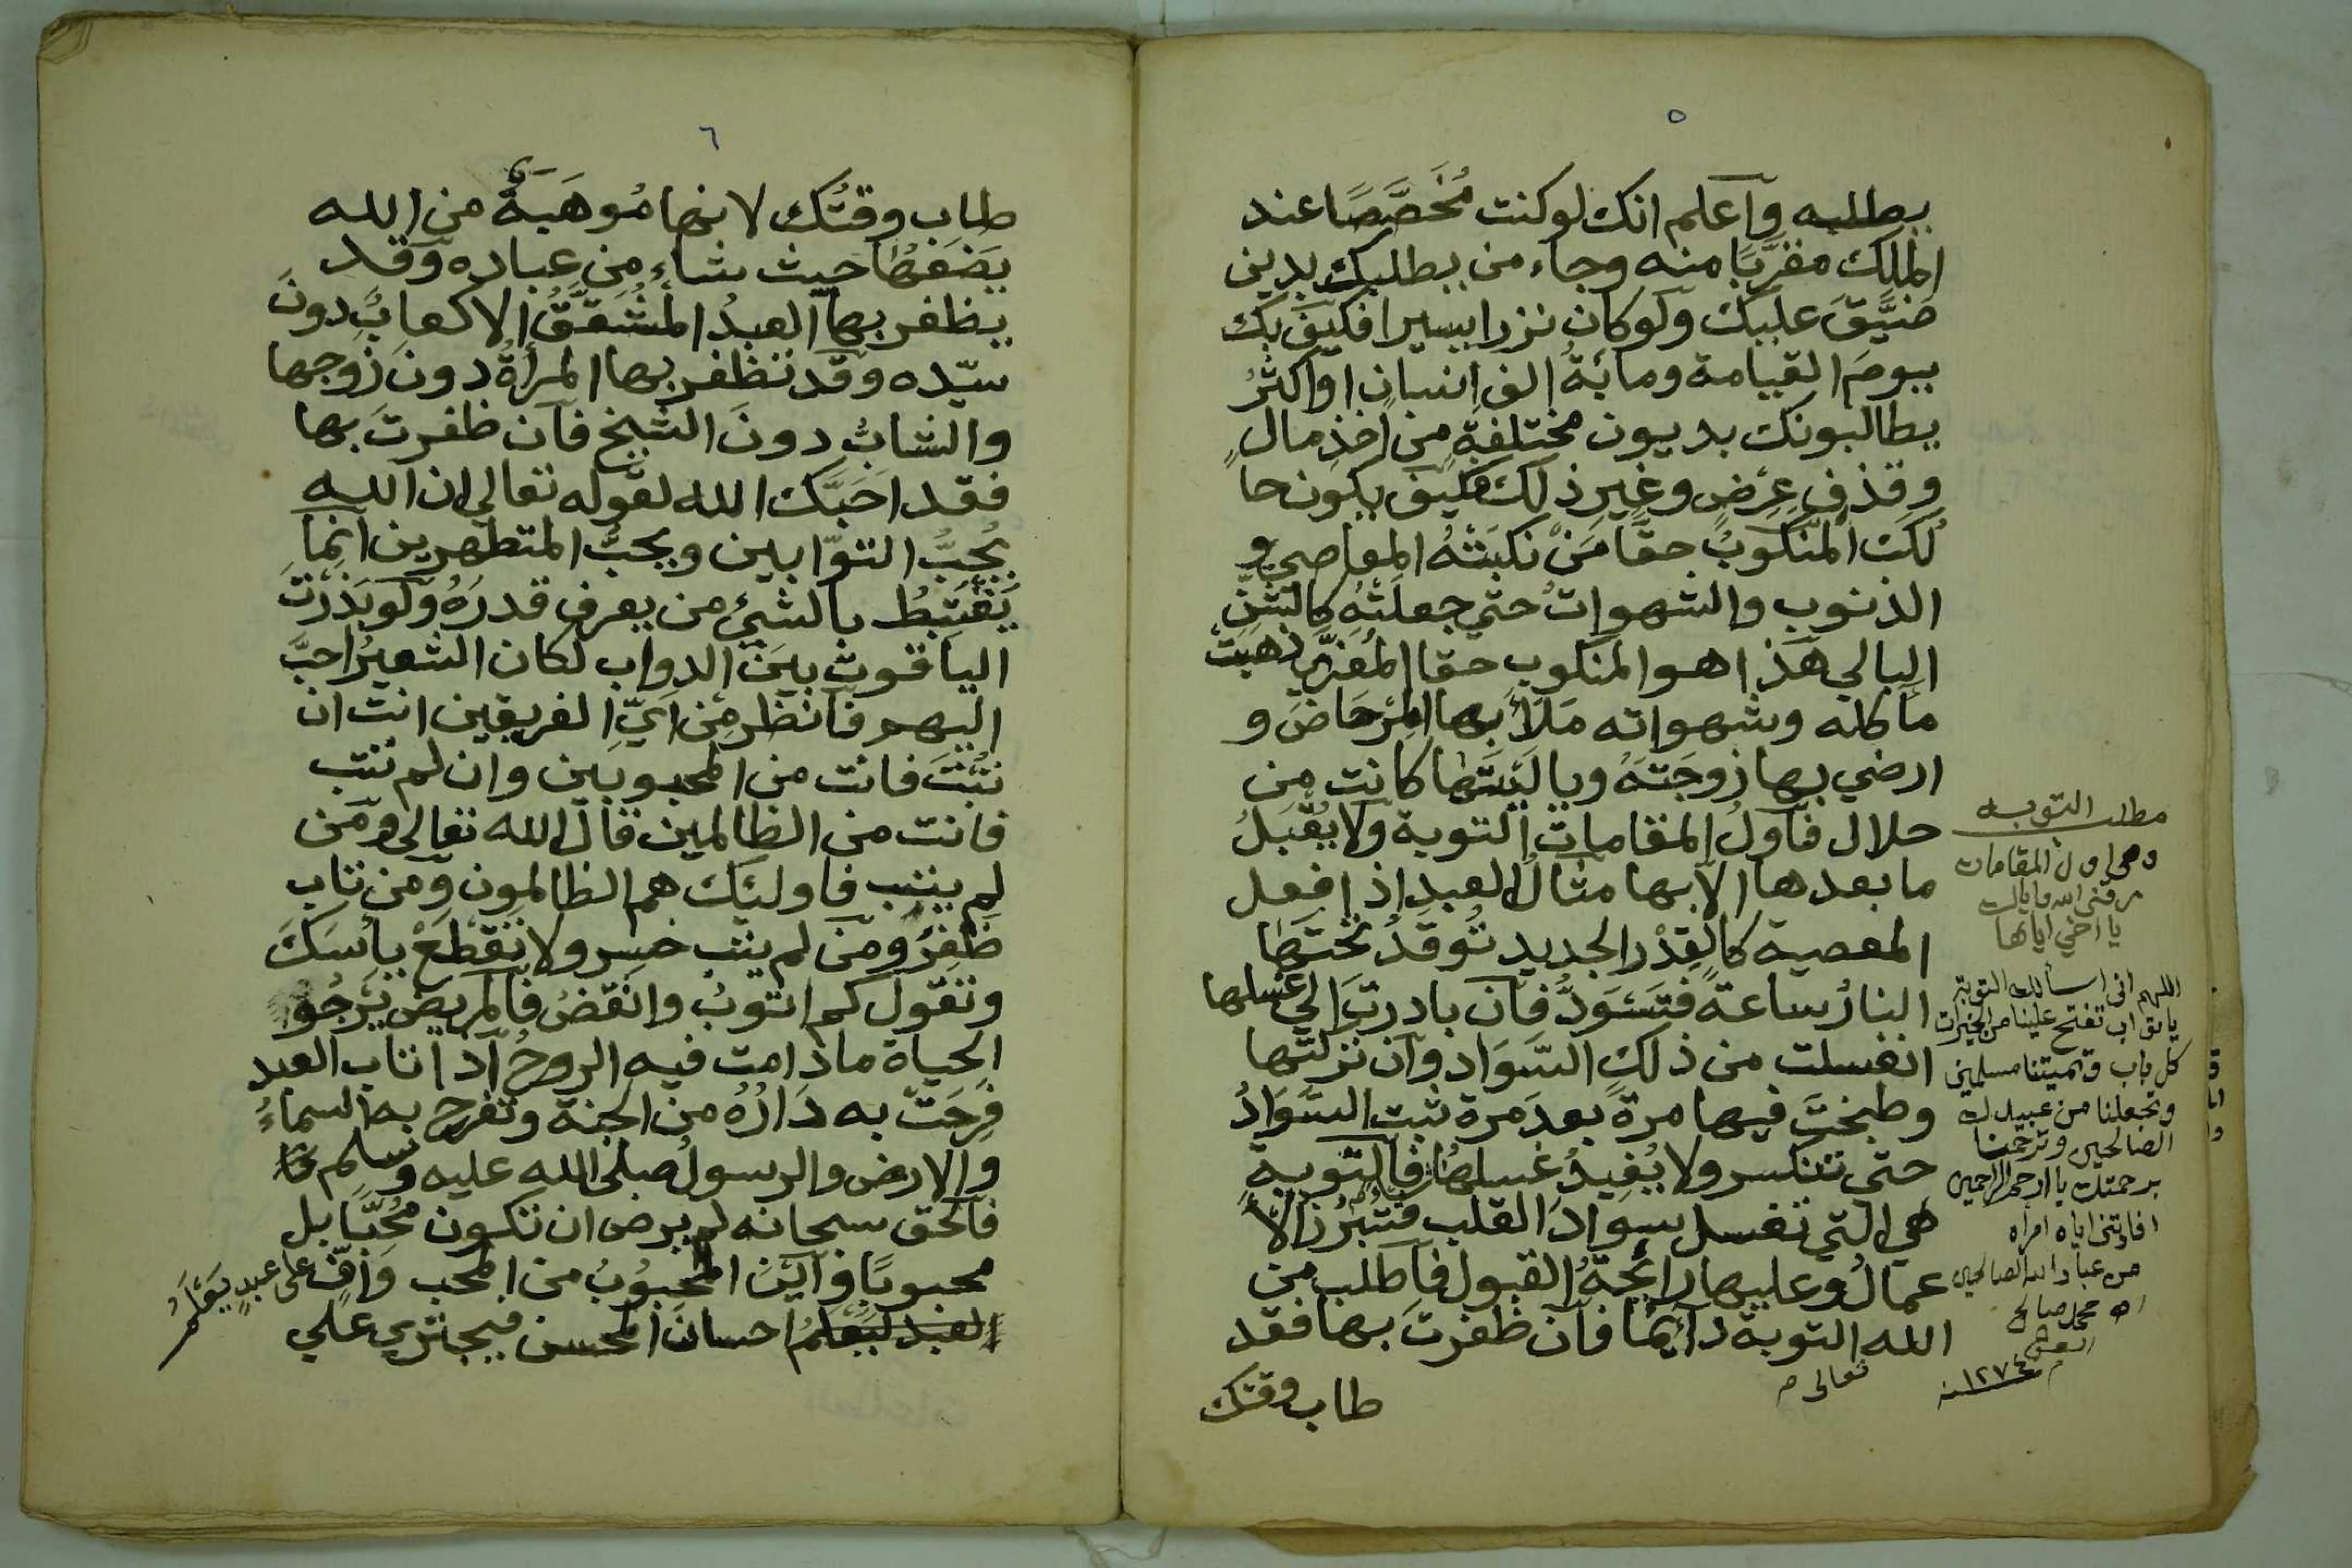 ٥
يطلبه واعلم انك لو كنت مُخَصَّصًا عند
الملك مقرَّبًا منه وجاء من يطلبك بدين
ضَيَّقَ عليك ولو كان نزرا يسيرا فكيف بك
يومَ القيامة ومائةُ الف انسان او اكثرُ
يطالبونك بديون مختلفةٍ من اخذِ مالٍ
وقذفِ عِرْضٍ وغيرِ ذلك فكيف يكون حا
لُكَ المنكوبُ حقًّا مَنْ نكبَتْهُ المعاصي و
الذنوب والشهواتُ حتى جعلَتْهُ كالشَّنِّ
البالي هذا هو المنكوب حقا المُعَزَّى ذهبت
مآكله وشهواته مَلَأَ بها المِرْحَاضَ و
ارضى بها زوجَتَهُ ويا ليتَها كانت من
حلال فاول المقامات التوبة ولا يُقْبَلُ
ما بعدها الا بها مثالُ العبد اذا فعل
المعصية كالقِدْر الجديد تُوقَدُ تحتَها
النارُ ساعةً فتَسْوَدُّ فان بادرتَ الى غسلها
انغسلت من ذلك السَّوَاد وان تركتَها
وطبختَ فيها مرةً بعدَ مرة ثبت السَّوَادُ
حتى تنكسر ولا يُفِيدُ غسلهُا فالتوبة
هي التي تغسل سوادَ القلب فتَبْرُزُ الأ
عمالُ وعليها رائحةُ القبول فاطلب من
الله التوبة دائمًا فان ظفرتَ بها فقد
تعالى م
طاب وقتك
مطلب التوبه
وهي اول المقامات
رزقني الله واياك
يا اخي اياها
اللهم اني اسألك التوبة
يا تواب تفتح علينا من الخيرات
كل باب وتميتنا مسلمين
وتجعلنا من عبيدك
الصالحين وترحمنا
برحمتك يا ارحم الراحمين
افادتني اياه امراه
من عباد الله الصالحين
اه محمد صالح
سنة ١٢٧٤
٦
طاب وقتُك لانها مُوهَبَةٌ من الله
يضعُها حيث شاء من عباده وقد
يظفر بها العبدُ المُشَقَّقُ الاكعابُ دونَ
سيّده وقد تظفر بها المرأةُ دونَ زوجها
والشابُ دونَ الشيخ فان ظفرتَ بها
فقد احَبَّك الله لقوله تعالى ان الله
يُحبُّ التوّابين ويحبُّ المتطهرين انما
يَغْتَبِطُ بالشيئ من يعرف قدرَهُ ولو بَذَرْتَ
الياقوت بينَ الدواب لكان الشعيرُ احبَّ
اليهم فانظر من ايِّ الفريقين انت ان
تُبْتَ فانت من المحبوبين وان لم تتب
فانت من الظالمين قال الله تعالى ومَن
لم يتب فاولئك هم الظالمون ومن تاب
ظَفِرَ ومن لم يتب خسر ولا تَقْطَعْ يأسَكَ
وتقول كم اتوبُ وانقضُ فالمريض يَرْجُو
الحياة ما دامت فيه الروحُ اذا تاب العبد
فرحَتْ به دَارُهُ من الجنة وتفرح به السماءُ
والارض والرسولُ صلى الله عليه وسلم
فالحق سبحانه لم يرض ان تكون مُحِبًّا بل
محبوبًا واَيْنَ المحبُوبُ من المحب وَافٍّ على عبدٍ يَعْلَمُ
العبد ليعلمُ احسانَ المحسن فيجتري على